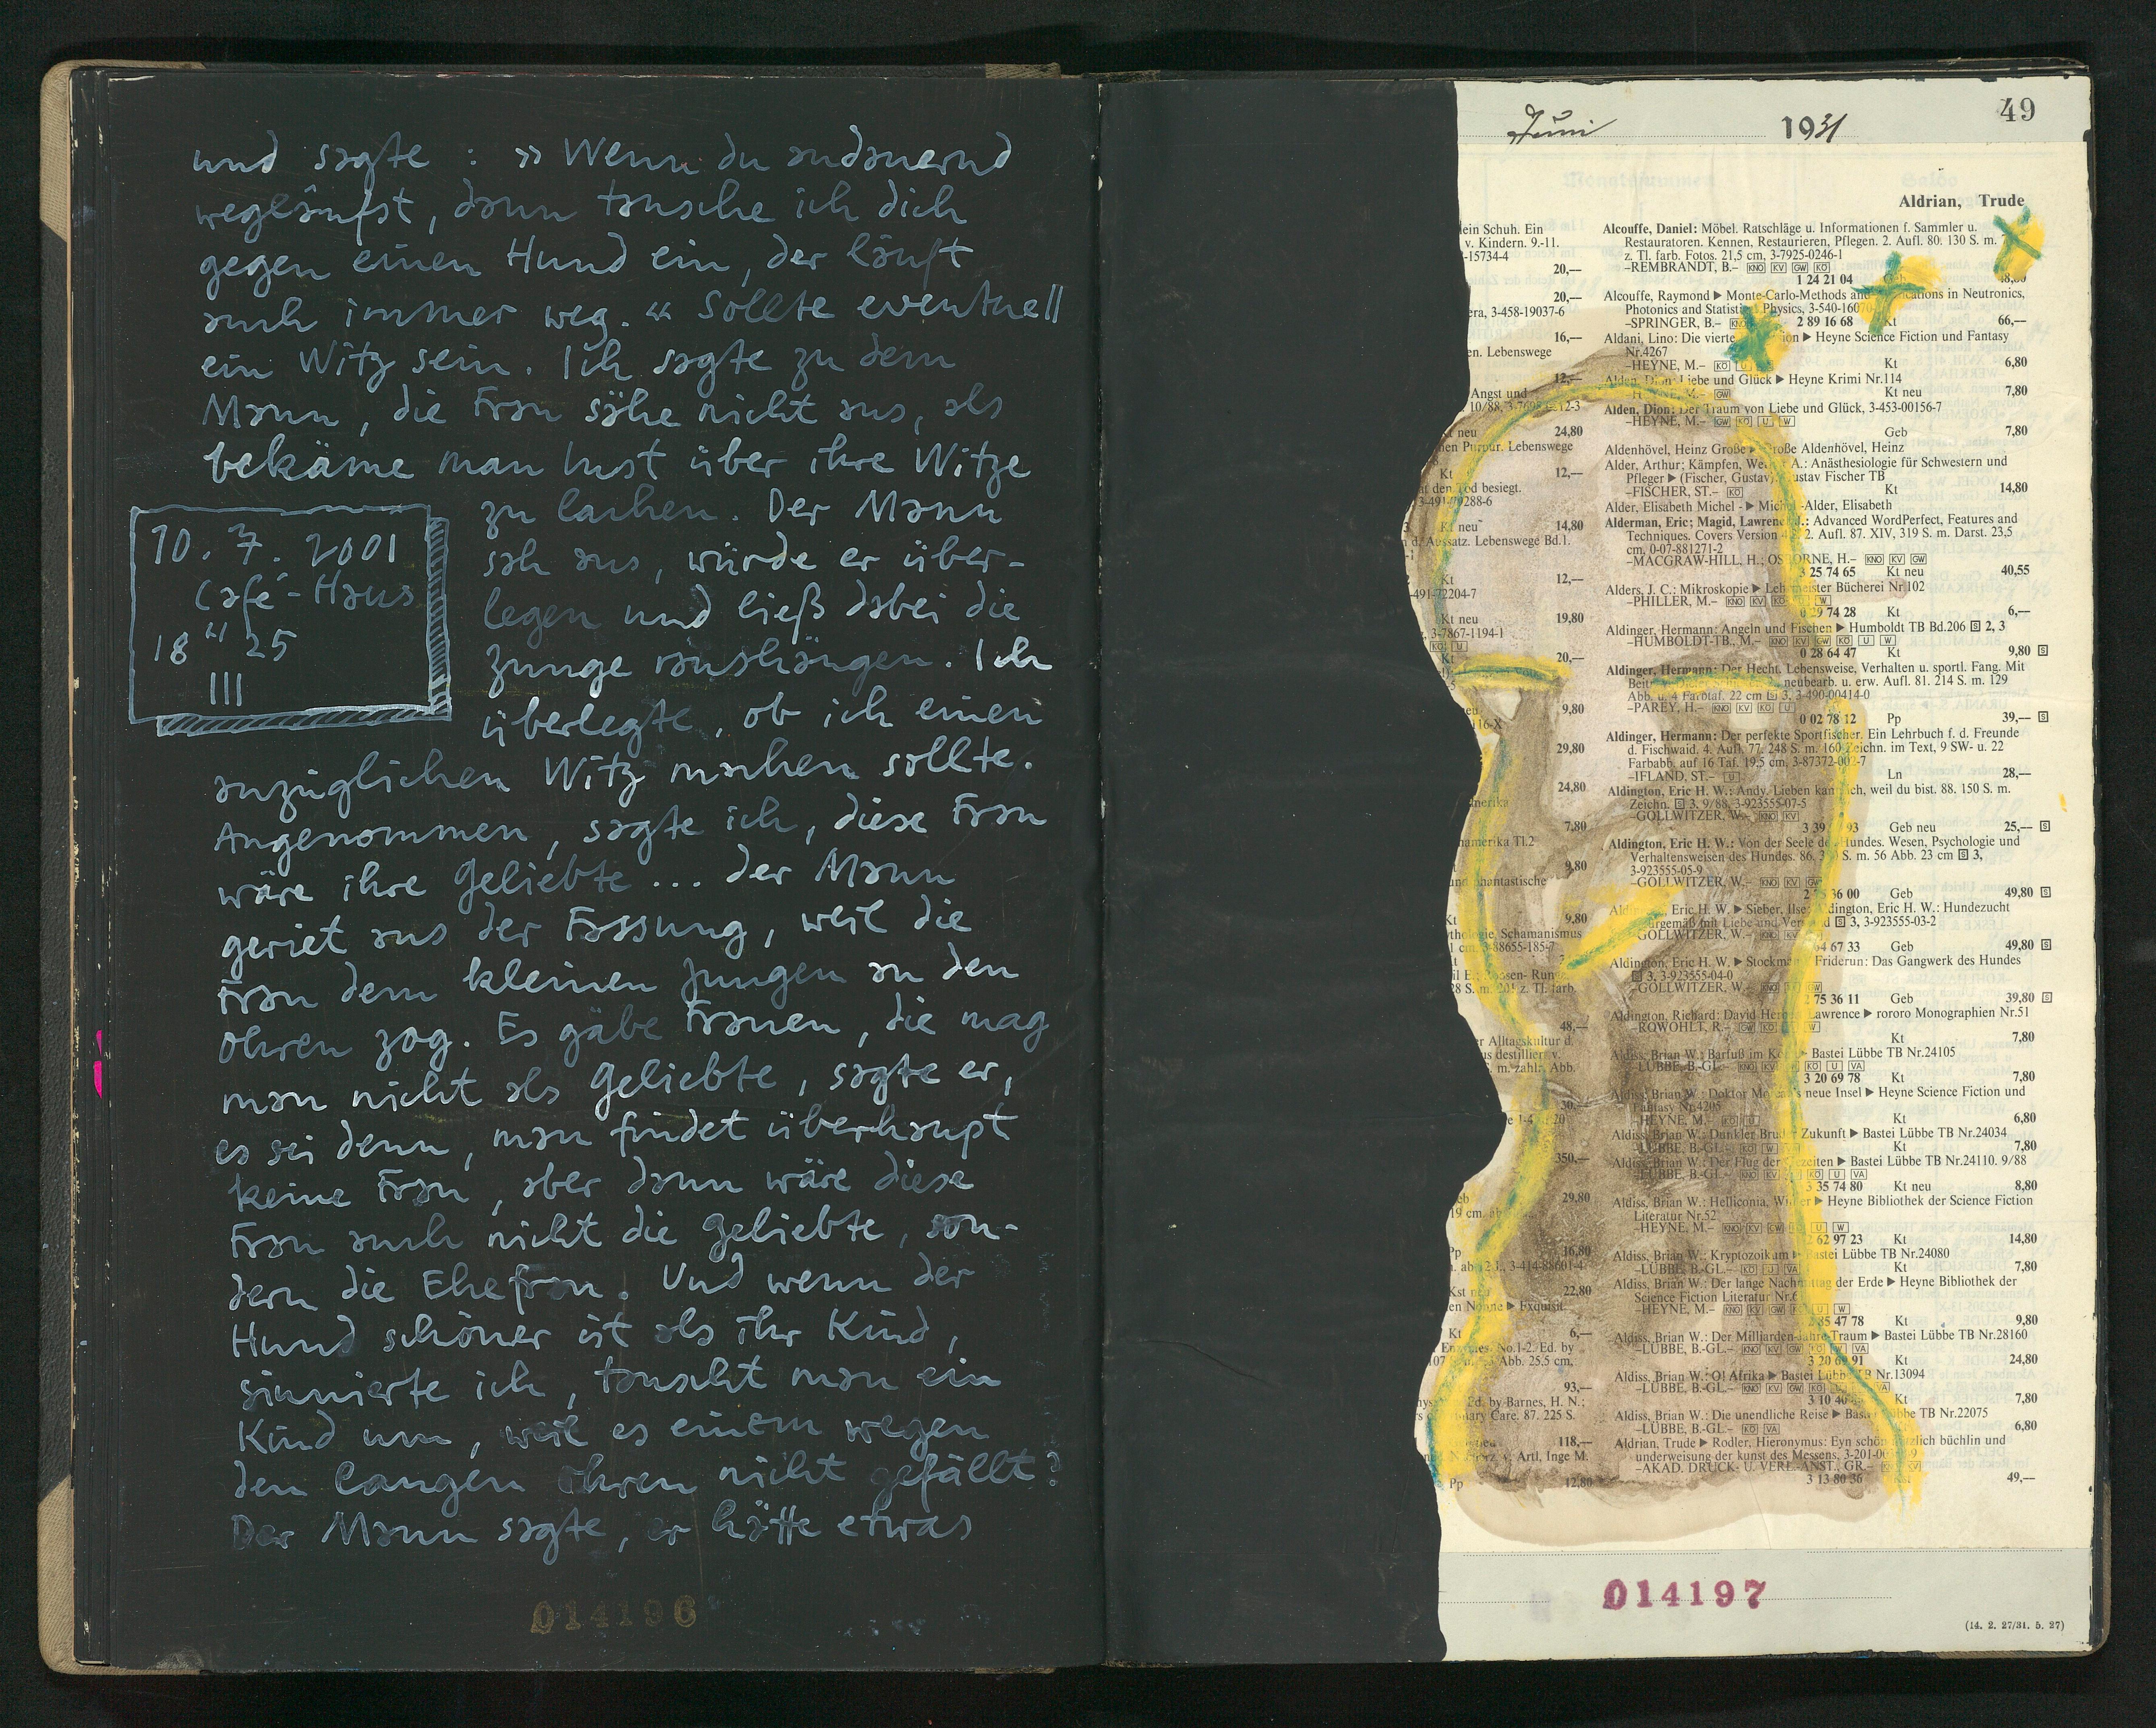 und sagte : » Wenn du andauernd
wegläufst, dann tausche ich dich
gegen einen Hund ein, der läuft
auch immer weg. « Sollte eventuell
ein Witz sein. Ich sagte zu dem
Mann, die Frau sähe nicht aus, als
bekäme man Lust über ihre Witze
zu lachen. Der Mann
sah aus, würde er über-
legen und ließ dabei die
Zunge raushängen. Ich
überlegte, ob ich einen
10. 7. 2001
Café-Haus
18 25
III
anzüglichen Witz machen sollte.
Angenommen, sagte ich, diese Frau
wäre ihre Geliebte ... der Mann
geriet aus der Fassung, weil die
Frau dem kleinen Jungen an den
Ohren zog. Es gäbe Frauen, die mag
man nicht als Geliebte, sagte er,
es sei denn, man findet überhaupt
keine Frau, aber dann wäre diese
Frau auch nicht die Geliebte, son-
dern die Ehefrau. Und wenn der
Hund schöner ist als ihr Kind,
sinnierte ich, tauscht man ein
Kind um, weil es einem wegen
den langen Ohren nicht gefällt?
Der Mann sagte, er hätte etwas
014196
Juni 1931
49
Aldrian, Trude
lein Schuh. Ein
v. Kindern. 9.-11.
-15734-4
20,—
20,—
era, 3-458-19037-6
16,—
en. Lebenswege
12,—
Angst und
24,80
en Purpur. Lebenswege
Kt 12,—
den Tod besiegt.
Kt neu 14,80
Aussatz. Lebenswege Bd.1.
Kt 12,—
-491-72204-7
Kt neu 19,80
3-7867-1194-1
20,—
9,80
116-X
29,80
24,80
merika
7,80
namerika Tl.2
9,80
und phantastische
Kt 9,80
Schamanismus
48,—
er Alltagskultur d.
us destillier v.
S. m. zahlr. Abb.
30,—
350,—
29,80
19 cm.
Pp 16,80
3-414-88601-4
22,80
Exquisit
Kt 6,—
No.1-2. Ed. by
Abb. 25,5 cm,
93,—
Ed. by Barnes, H. N.;
Care. 87. 225 S.
118,—
Artl, Inge M.
Pp 12,80
Alcouffe, Daniel: Möbel. Ratschläge u. Informationen f. Sammler u.
Restauratoren. Kennen, Restaurieren, Pflegen. 2. Aufl. 80. 130 S. m.
z. Tl. farb. Fotos. 21,5 cm, 3-7925-0246-1
–REMBRANDT, B.– KNO KV GW KÖ
1 24 21 04
Alcouffe, Raymond ▶ Monte-Carlo-Methods and in Neutronics,
Photonics and Statistical Physics, 3-540-16070
–SPRINGER, B.– KNO 2 89 16 68 Kt 66,—
Aldani, Lino: Die vierte ▶ Heyne Science Fiction und Fantasy
Nr.4267
–HEYNE, M.– KÖ U Kt 6,80
Alden, Dion: Liebe und Glück ▶ Heyne Krimi Nr.114
–HEYNE, M.– GW Kt neu 7,80
Alden, Dion: Der Traum von Liebe und Glück, 3-453-00156-7
–HEYNE, M.– GW KÖ U W
Geb 7,80
Aldenhövel, Heinz Große ▶ Große Aldenhövel, Heinz
Alder, Arthur; Kämpfen, A.: Anästhesiologie für Schwestern und
Pfleger ▶ (Fischer, Gustav): Gustav Fischer TB
–FISCHER, ST.– KÖ Kt 14,80
Alder, Elisabeth Michel - ▶ Michel -Alder, Elisabeth
Alderman, Eric; Magid, Lawrence J.: Advanced WordPerfect, Features and
Techniques. Covers Version 2. Aufl. 87. XIV, 319 S. m. Darst. 23,5
cm, 0-07-881271-2
–MACGRAW-HILL, H.; OSBORNE, H.– KNO KV GW
3 25 74 65 Kt neu 40,55
Alders, J. C.: Mikroskopie ▶ Lehrmeister Bücherei Nr.102
–PHILLER, M.– KNO KV KÖ W
0 29 74 28 Kt 6,—
Aldinger, Hermann: Angeln und Fischen ▶ Humboldt TB Bd.206 S 2, 3
–HUMBOLDT-TB., M.– KNO KV GW KÖ U W
0 28 64 47 Kt 9,80 S
Aldinger, Hermann: Der Hecht. Lebensweise, Verhalten u. sportl. Fang. Mit
neubearb. u. erw. Aufl. 81. 214 S. m. 129
Abb. u. 4 Farbtaf. 22 cm S 3, 3-490-00414-0
–PAREY, H.– KNO KV KÖ U
0 02 78 12 Pp 39,— S
Aldinger, Hermann: Der perfekte Sportfischer. Ein Lehrbuch f. d. Freunde
d. Fischwaid. 4. Aufl. 77. 248 S. m. 160 Zeichn. im Text, 9 SW- u. 22
Farbabb. auf 16 Taf. 19,5 cm, 3-87372-002-7
–IFLAND, ST.– U Ln 28,—
Aldington, Eric H. W.: Andy. Lieben kann ich, weil du bist. 88. 150 S. m.
Zeichn. S 3, 9/88, 3-923555-07-5
–GOLLWITZER, W.– KNO KV
3 39 93 Geb neu 25,— S
Aldington, Eric H. W.: Von der Seele des Hundes. Wesen, Psychologie und
Verhaltensweisen des Hundes. 86. S. m. 56 Abb. 23 cm S 3,
3-923555-05-9
–GOLLWITZER, W.– KNO KV GW
2 75 36 00 Geb 49,80 S
Aldington, Eric H. W. ▶ Sieber, Ilse; Aldington, Eric H. W.: Hundezucht
naturgemäß mit Liebe und Verstand S 3, 3-923555-03-2
GOLLWITZER, W.– KNO KV
64 67 33 Geb 49,80 S
Aldington, Eric H. W. ▶ Stockmann, Friderun: Das Gangwerk des Hundes
S 3, 3-923555-04-0
–GOLLWITZER, W.– KNO KV GW
2 75 36 11 Geb 39,80 S
Aldington, Richard: David Herbert Lawrence ▶ rororo Monographien Nr.51
–ROWOHLT, R.– GW KÖ W
Kt 7,80
Aldiss, Brian W.: Barfuß im Kopf ▶ Bastei Lübbe TB Nr.24105
–LÜBBE, B.-GL.– KNO KV KÖ U VA
3 20 69 78 Kt 7,80
Aldiss, Brian W.: Doktor Moreau's neue Insel ▶ Heyne Science Fiction und
Fantasy Nr.4205
–HEYNE, M.– KÖ U Kt 6,80
Aldiss, Brian W.: Dunkler Bruder Zukunft ▶ Bastei Lübbe TB Nr.24034
–LÜBBE, B.-GL.– KÖ W VA Kt 7,80
Aldiss, Brian W.: Der Flug der Gezeiten ▶ Bastei Lübbe TB Nr.24110. 9/88
–LÜBBE, B.-GL.– KNO KV KÖ U VA
3 35 74 80 Kt neu 8,80
Aldiss, Brian W.: Helliconia, Winter ▶ Heyne Bibliothek der Science Fiction
Literatur Nr.52
–HEYNE, M.– KNO KV GW KÖ U W
2 62 97 23 Kt 14,80
Aldiss, Brian W.: Kryptozoikum ▶ Bastei Lübbe TB Nr.24080
–LÜBBE, B.-GL.– KÖ U VA Kt 7,80
Aldiss, Brian W.: Der lange Nachmittag der Erde ▶ Heyne Bibliothek der
Science Fiction Literatur Nr.6
–HEYNE, M.– KNO KV GW KÖ U W
2 35 47 78 Kt 9,80
Aldiss, Brian W.: Der Milliarden-Jahre-Traum ▶ Bastei Lübbe TB Nr.28160
–LÜBBE, B.-GL.– KNO KV GW KÖ U VA
3 20 69 91 Kt 24,80
Aldiss, Brian W.: O! Afrika ▶ Bastei Lübbe TB Nr.13094
–LÜBBE, B.-GL.– KNO KV GW KÖ U VA
3 10 40 Kt 7,80
Aldiss, Brian W.: Die unendliche Reise ▶ Bastei Lübbe TB Nr.22075
–LÜBBE, B.-GL.– KÖ VA 6,80
Aldrian, Trude ▶ Rodler, Hieronymus: Eyn schön nützlich büchlin und
underweisung der kunst des Messens, 3-201-00
–AKAD. DRUCK- U. VERL.-ANST., GR.– KNO KV
3 13 80 36 49,—
014197
(14. 2. 27/31. 5. 27)